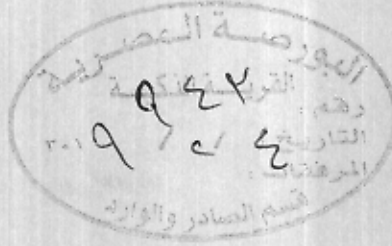 البورصة المصرية
القرية الذكية
رقم : ٩٩٤٢
التاريخ ٤ / ٢ / ٢٠١٩
المرفقات :
قسم الصادر والوارد